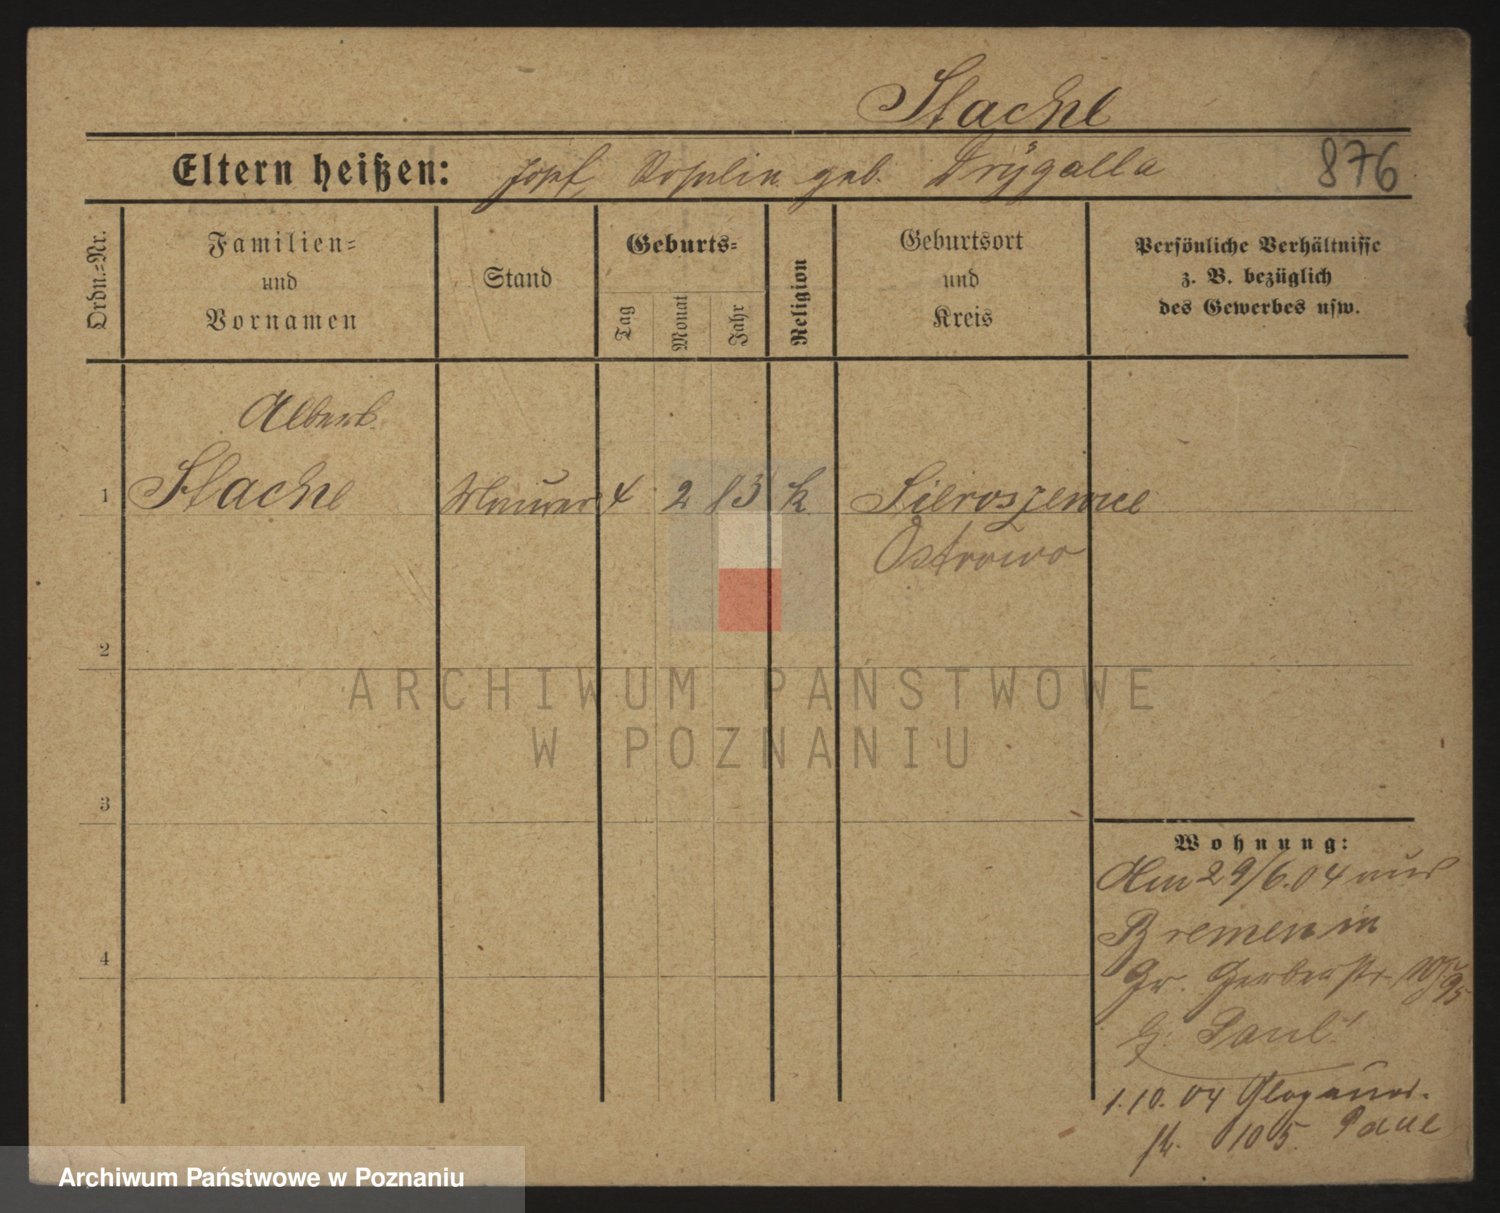 Stache
Eltern heißen: Josef, Rosalin geb. Drÿgalla 876
Ordn.=Nr.
Familien=
und
Vornamen
Stand
Geburts=
Tag
Monat
Jahr
Religion
Geburtsort
und
Kreis
Persönliche Verhältnisse
z. B. bezüglich
des Gewerbes usw.
Albert
1 Stache Maurer 4 2 83 k Sieroszewice
Ostrowo
2
3
4
ARCHIWUM PAŃSTWOWE
W POZNANIU
Wohnung:
Am 29/6.04 aus
Bremen in
Gr. Gerberstr.
b. Paul
1.10.04 Glogauer-
str. 105 Paul
Archiwum Państwowe w Poznaniu